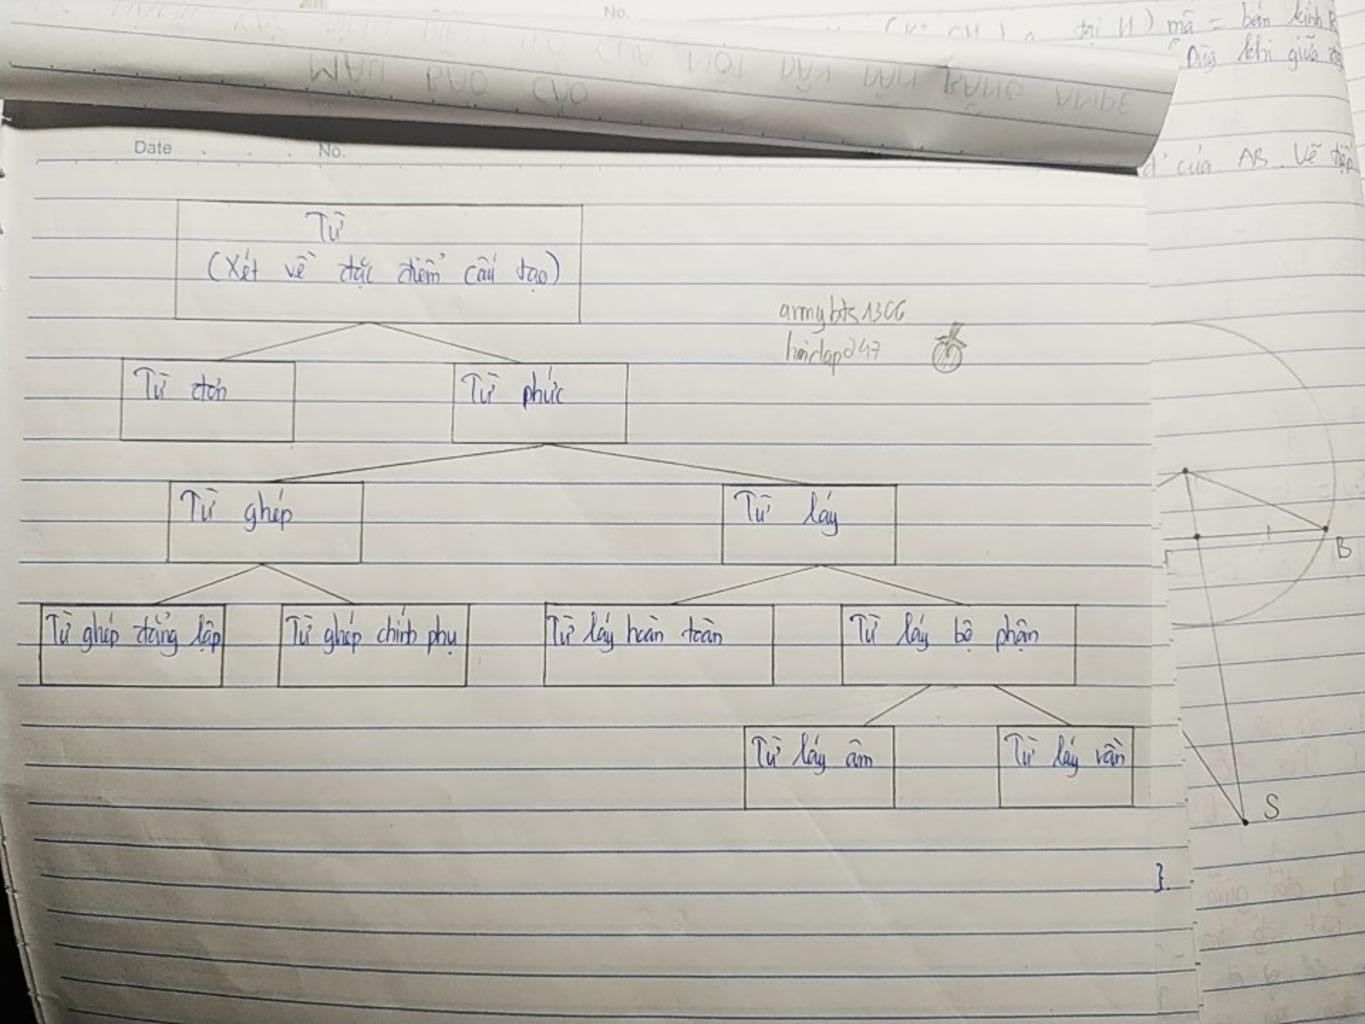 No.
mà = bán kính R
Date No.
của AB. Vẽ tiếp
Từ
(Xét về đặc điểm cấu tạo)
armybts1306
hoidap247
Từ đơn
Từ phức
Từ ghép
Từ láy
B
Từ ghép đẳng lập
Từ ghép chính phụ
Từ láy hoàn toàn
Từ láy bộ phận
Từ láy âm
Từ láy vần
S